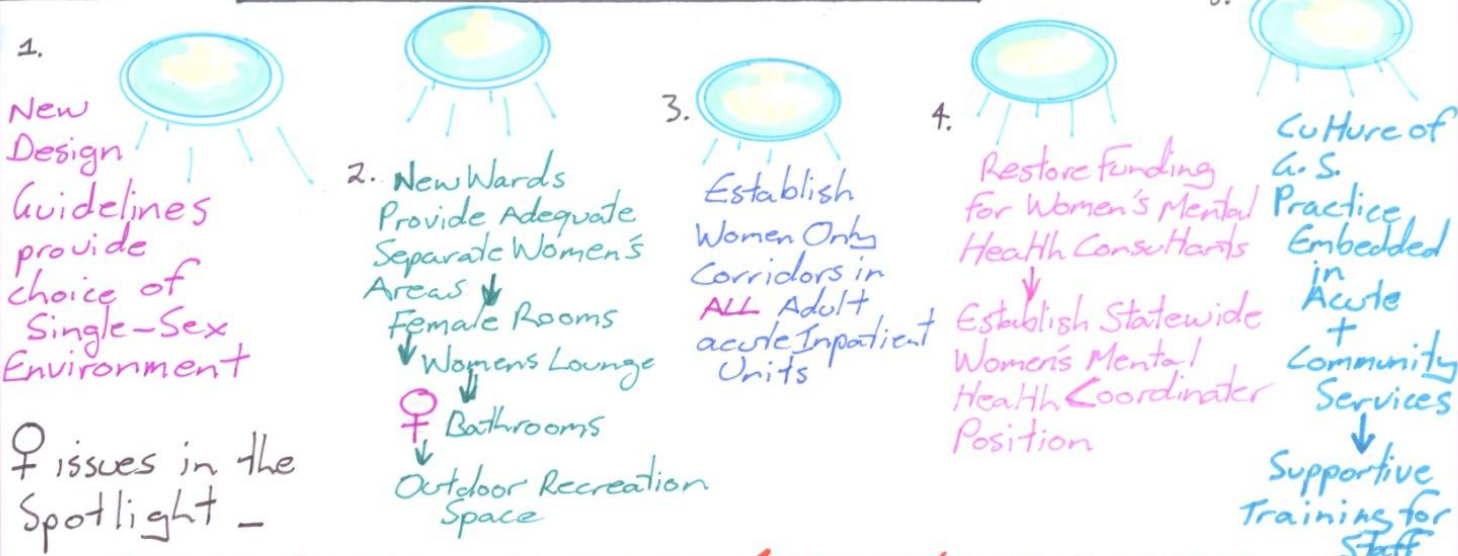 1.
New
Design
Guidelines
provide
choice of
Single-Sex
Environment
2. New Wards
Provide Adequate
Separate Women's
Areas ↓
Female Rooms
↓ Womens Lounge
↓
♀ Bathrooms
↓
Outdoor Recreation
Space
3.
Establish
Women Only
Corridors in
ALL Adult
acute Inpatient
Units
4.
Restore Funding
for Women's Mental
Health Consultants
↓
Establish Statewide
Women's Mental
Health Coordinater
Position
Culture of
G.S.
Practice
Embedded
in
Acute
+
Community
Services
↓
Supportive
Training for
Staff
♀ issues in the
Spotlight -